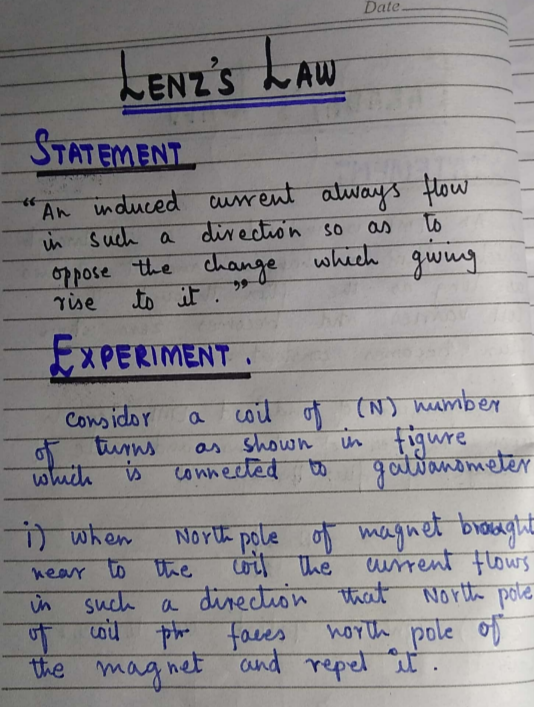 Date
LENZ'S LAW
STATEMENT
"An induced current always flow
in such a direction so as to
oppose the change which giving
rise to it."
EXPERIMENT.
considor a coil of (N) number
of turns as shown in figure
which is connected to galvanometer
i) when North pole of magnet brought
near to the coil the current flows
in such a direction that North pole
of coil faces north pole of
the magnet and repel it.